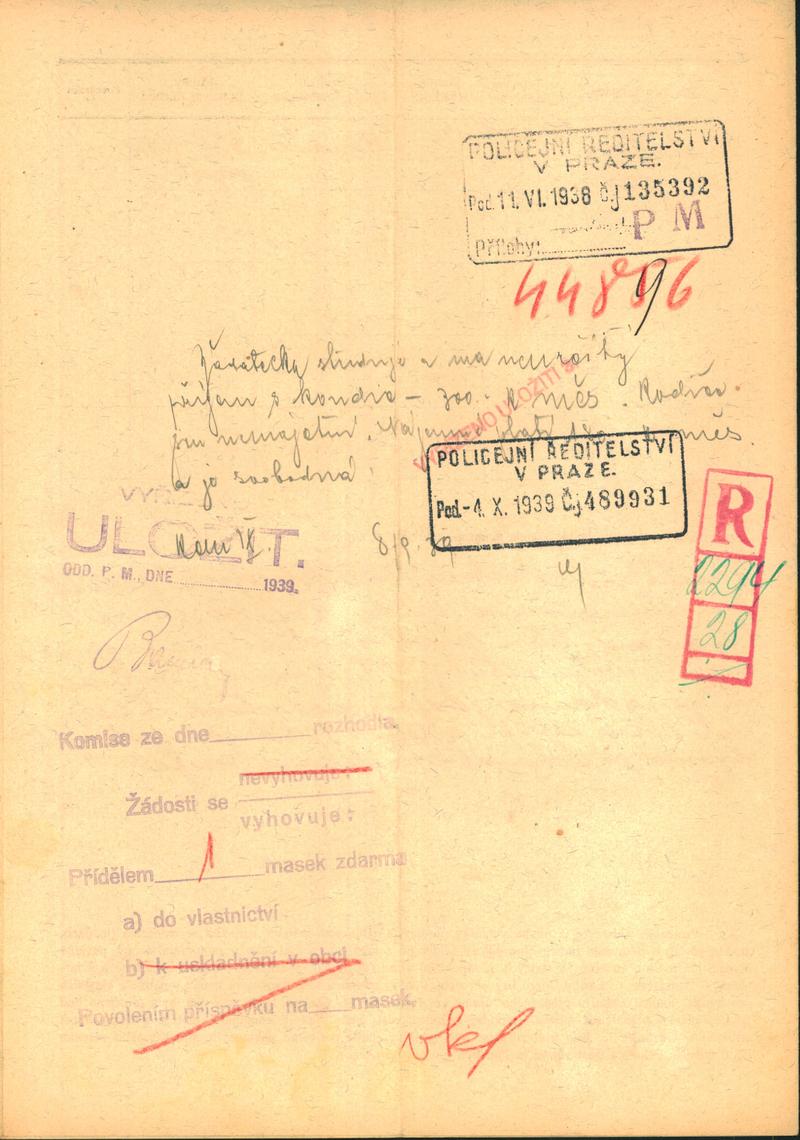 POLICEJNÍ ŘEDITELSTVÍ
V PRAZE.
Pod. 11. VI. 1938 Čj 135392
Přílohy: P M
44896
Žadatelka studuje a má neurčitý
příjem s kondic – 300.- K měs. Rodiče
jsou nemajetní. Nájemné platí K měs.
a je svobodná.
POLICEJNÍ ŘEDITELSTVÍ
V PRAZE.
Pod. -4. X. 1939 Čj 489931
ULOŽIT.
ODD. P. M., DNE 1939.
Kom IX.
8/9. 39
R
2294
28
Komise ze dne rozhodla,
nevyhovuje:
Žádosti se
vyhovuje:
Přídělem 1 masek zdarma
a) do vlastnictví
b) k uskladnění v obci
Povolením příspěvku na masek.
vkl